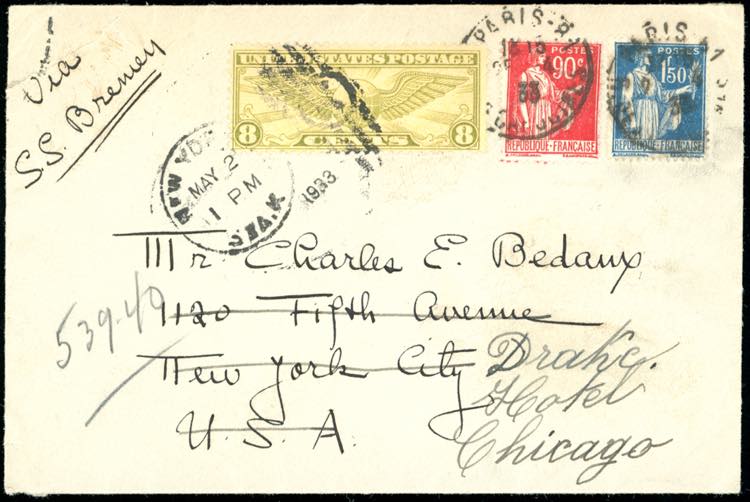 Via
S.S. Bremen
UNITED STATES POSTAGE
8 CENTS 8
NEW YORK
MAY 2
11 PM
1933
PARIS
33
POSTES
90c
REPUBLIQUE-FRANÇAISE
PARIS
POSTES
1F50
REPUBLIQUE-FRANÇAISE
Mr Charles E. Bedaux
1120 Fifth Avenue
New York City
U.S.A.
539.40
Drake
Hotel
Chicago